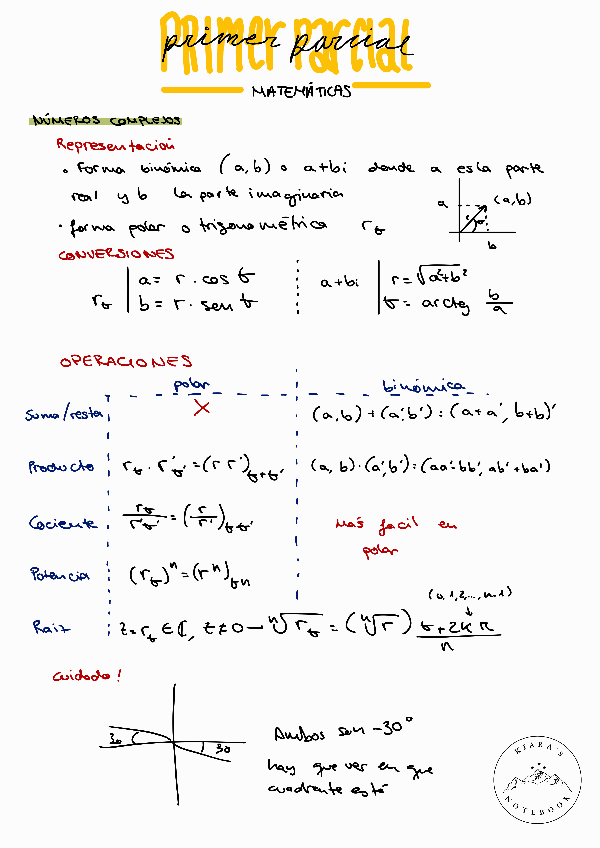 Primer Parcial
primer parcial
MATEMÁTICAS
NÚMEROS COMPLEJOS
Representación
• Forma binómica (a,b) o a+bi donde a es la parte
real y b la parte imaginaria
a (a,b)
• forma polar o trigonométrica r_σ
b
CONVERSIONES
r_σ | a = r · cos σ
b = r · sen σ
a+bi | r = √a²+b²
σ = arctg b/a
OPERACIONES
polar binómica
Suma/resta X (a,b) + (a',b') = (a+a', b+b)'
Producto r_σ · r'_σ' = (r r')_σ+σ' (a,b)·(a',b') = (aa'-bb', ab'+ba')
Cociente r_σ/r'_σ' = (r/r')_σ-σ' Más facil en
polar
Potencia (r_σ)ⁿ = (rⁿ)_σn
(0,1,2,...,n-1)
↓
Raiz z = r_σ ∈ ℂ, z ≠ 0 → ⁿ√r_σ = (ⁿ√r) σ+2kπ/n
Cuidado!
30 30
Ambos son -30°
hay que ver en que
cuadrante está
KIARA'S
NOTEBOOK